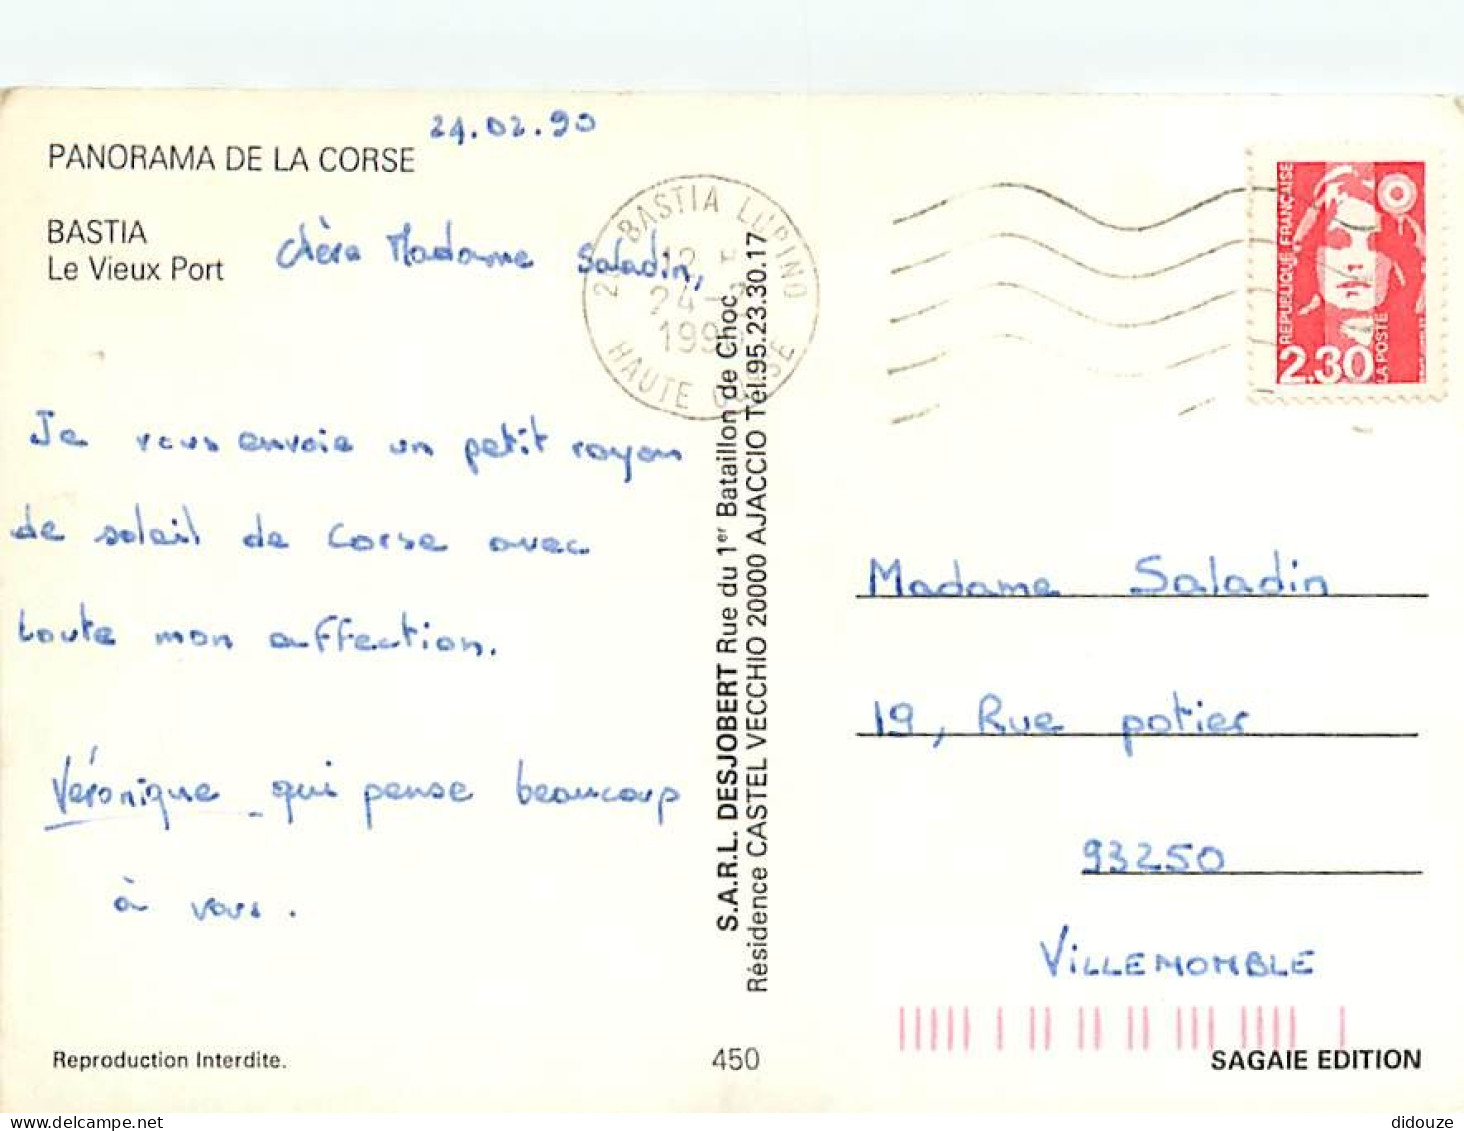 24.02.90
PANORAMA DE LA CORSE
BASTIA
Le Vieux Port
Chère Madame Saladin,
Je vous envoie un petit rayon
de soleil de Corse avec
toute mon affection.
Véronique qui pense beaucoup
à vous.
Reproduction Interdite.
BASTIA LUPINO
24-2
199
HAUTE CORSE
S.A.R.L. DESJOBERT Rue du 1er Bataillon de Choc
Résidence CASTEL VECCHIO 20000 AJACCIO Tél.95.23.30.17
450
REPUBLIQUE FRANÇAISE
2,30
LA POSTE
Madame Saladin
19, Rue potier
93250
VILLEMOMBLE
SAGAIE EDITION
didouze